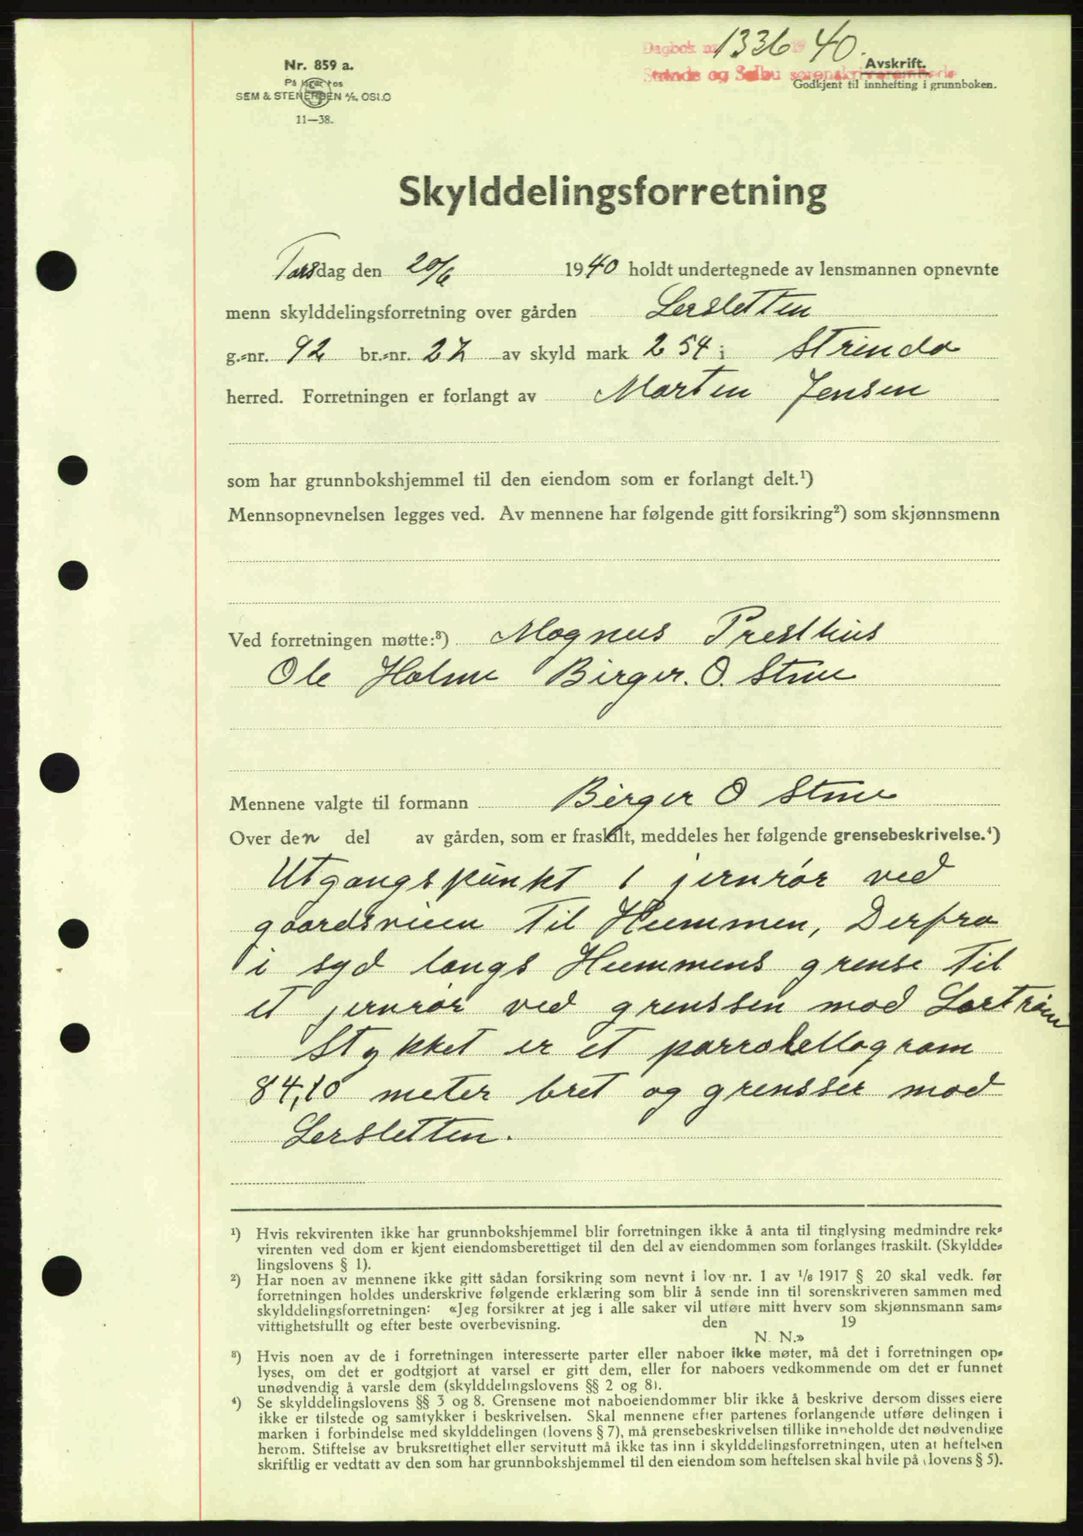 Nr. 859 a.
På lager hos
SEM & STENERSEN A/S, OSLO
11—38.
Dagbok nr. 1336 19 40.
Strinda og Selbu sorenskriverembede
Avskrift.
Godkjent til innhefting i grunnboken.
Skylddelingsforretning
Torsdag den 20/6 1940 holdt undertegnede av lensmannen opnevnte
menn skylddelingsforretning over gården Lersletten
g.-nr. 92 br.-nr. 27 av skyld mark 2 54 i Strinda
herred. Forretningen er forlangt av Morten Jensen
som har grunnbokshjemmel til den eiendom som er forlangt delt.¹)
Mennsopnevnelsen legges ved. Av mennene har følgende gitt forsikring²) som skjønnsmenn
Ved forretningen møtte:³) Magnus Presthus
Ole Holme Birger. O. Stue
Mennene valgte til formann Birger O Stue
Over den del av gården, som er fraskilt, meddeles her følgende grensebeskrivelse.⁴)
Utgangspunkt 1 jernrør ved
gaardsveien til Hummen, Derfra
i syd langs Hummens grense til
et jernrør ved grenssen mod
Stykket er et parralellogram
84,10 meter bret og grensser mod
Lersletten.
¹) Hvis rekvirenten ikke har grunnbokshjemmel blir forretningen ikke å anta til tinglysing medmindre rek-
virenten ved dom er kjent eiendomsberettiget til den del av eiendommen som forlanges fraskilt. (Skyldde-
lingslovens § 1).
²) Har noen av mennene ikke gitt sådan forsikring som nevnt i lov nr. 1 av 1/6 1917 § 20 skal vedk. før
forretningen holdes underskrive følgende erklæring som blir å sende inn til sorenskriveren sammen med
skylddelingsforretningen: «Jeg forsikrer at jeg i alle saker vil utføre mitt hverv som skjønnsmann sam-
vittighetsfullt og efter beste overbevisning. den 19
N. N.»
³) Hvis noen av de i forretningen interesserte parter eller naboer ikke møter, må det i forretningen op-
lyses, om det er godtgjort at varsel er gitt dem, eller for naboers vedkommende om det er funnet
unødvendig å varsle dem (skylddelingslovens §§ 2 og 8).
⁴) Se skylddelingslovens §§ 3 og 8. Grensene mot naboeiendommer blir ikke å beskrive dersom disses eiere
ikke er tilstede og samtykker i beskrivelsen. Skal mennene efter partenes forlangende utføre delingen i
marken i forbindelse med skylddelingen (lovens § 7), må grensebeskrivelsen tillike inneholde det nødvendige
herom. Stiftelse av bruksrettighet eller servitutt må ikke tas inn i skylddelingsforretningen, uten at heftelsen
skriftlig er vedtatt av den som har grunnbokshjemmel til den eiendom som heftelsen skal hvile på (lovens § 5).